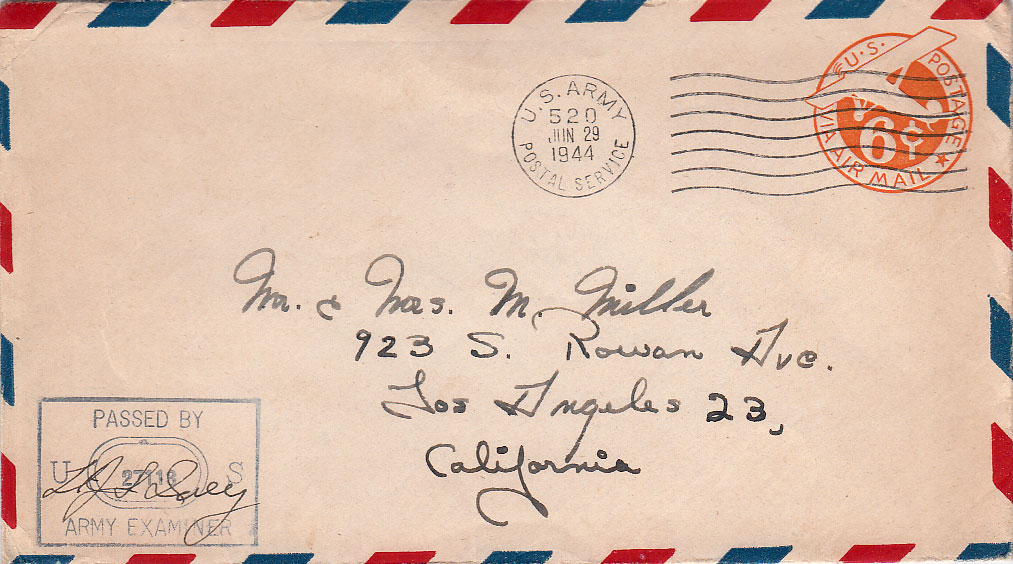 U.S. ARMY
520
JUN 29
1944
POSTAL SERVICE
U.S. POSTAGE
6¢
VIA AIR MAIL
Mr. & Mrs. M. Miller
923 S. Rowan Ave.
Los Angeles 23,
California
PASSED BY
U S
ARMY EXAMINER